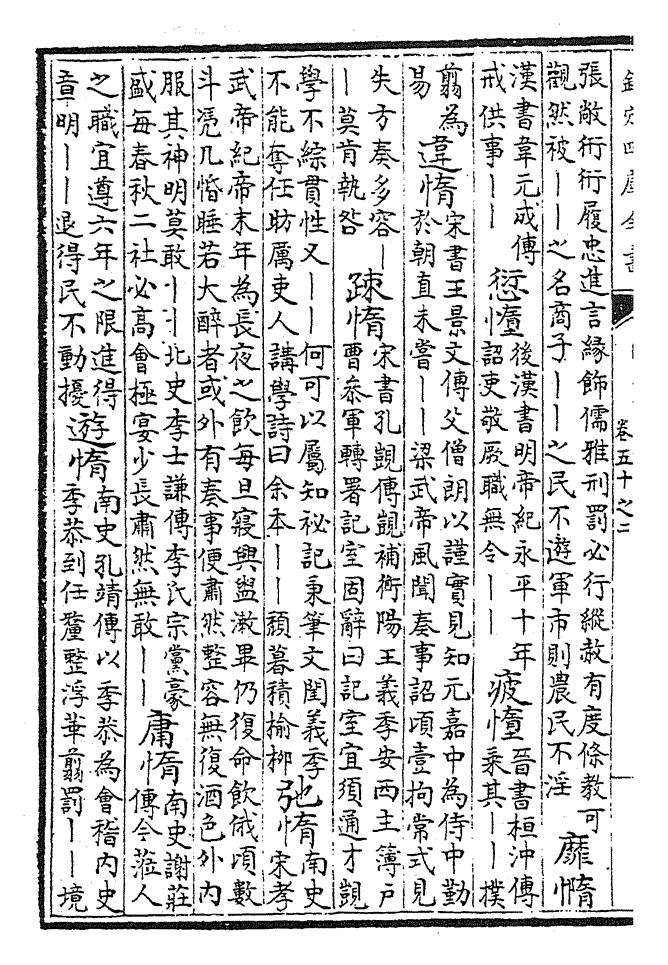 欽定四庫全書
卷五十之二
張敞衎衎履忠進言緣飾儒雅刑罰必行縱赦有度條教可
觀然被丨丨之名商子丨丨之民不遊軍市則農民不淫
靡惰
漢書韋元成傳
戒供事丨丨
愆憜
後漢書明帝紀永平十年
詔吏敬厥職無令丨丨
疲憜
晉書桓沖傳
乘其丨丨撲
翦為
易
違惰
宋書王景文傳父僧朗以謹實見知元嘉中為侍中勤
於朝直未嘗丨丨梁武帝風聞奏事詔頃壹拘常式見
失方奏多容丨
丨莫肯執咎
疎惰
宋書孔覬傳覬補衡陽王義季安西主簿戶
曹叅軍轉署記室固辭曰記室宜須通才覬
學不綜貫性又丨丨何可以屬知祕記秉筆文閨義季
不能奪任昉厲吏人講學詩曰余本丨丨頽暮積榆柳
弛惰
南史
宋孝
武帝紀帝末年為長夜之飲每旦寢興盥漱畢仍復命飲俄頃數
斗凭几惛睡若大醉者或外有奏事便肅然整容無復酒色外內
服其神明莫敢丨丨北史李士謙傳李氏宗黨豪
盛每春秋二社必高會極宴少長肅然無敢丨丨
庸惰
南史謝莊
傳今蒞人
之職宜遵六年之限進得
章明丨丨退得民不動擾
遊惰
南史孔靖傳以季恭為會稽內史
季恭到任釐整浮華翦罰丨丨境